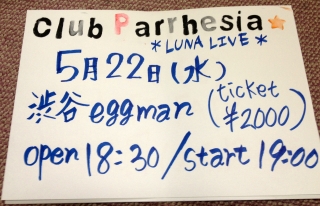 Club Parrhesia☆
*LUNA LIVE*
5月22日(水)
渋谷eggman (ticket ¥2000)
open 18:30/start 19:00